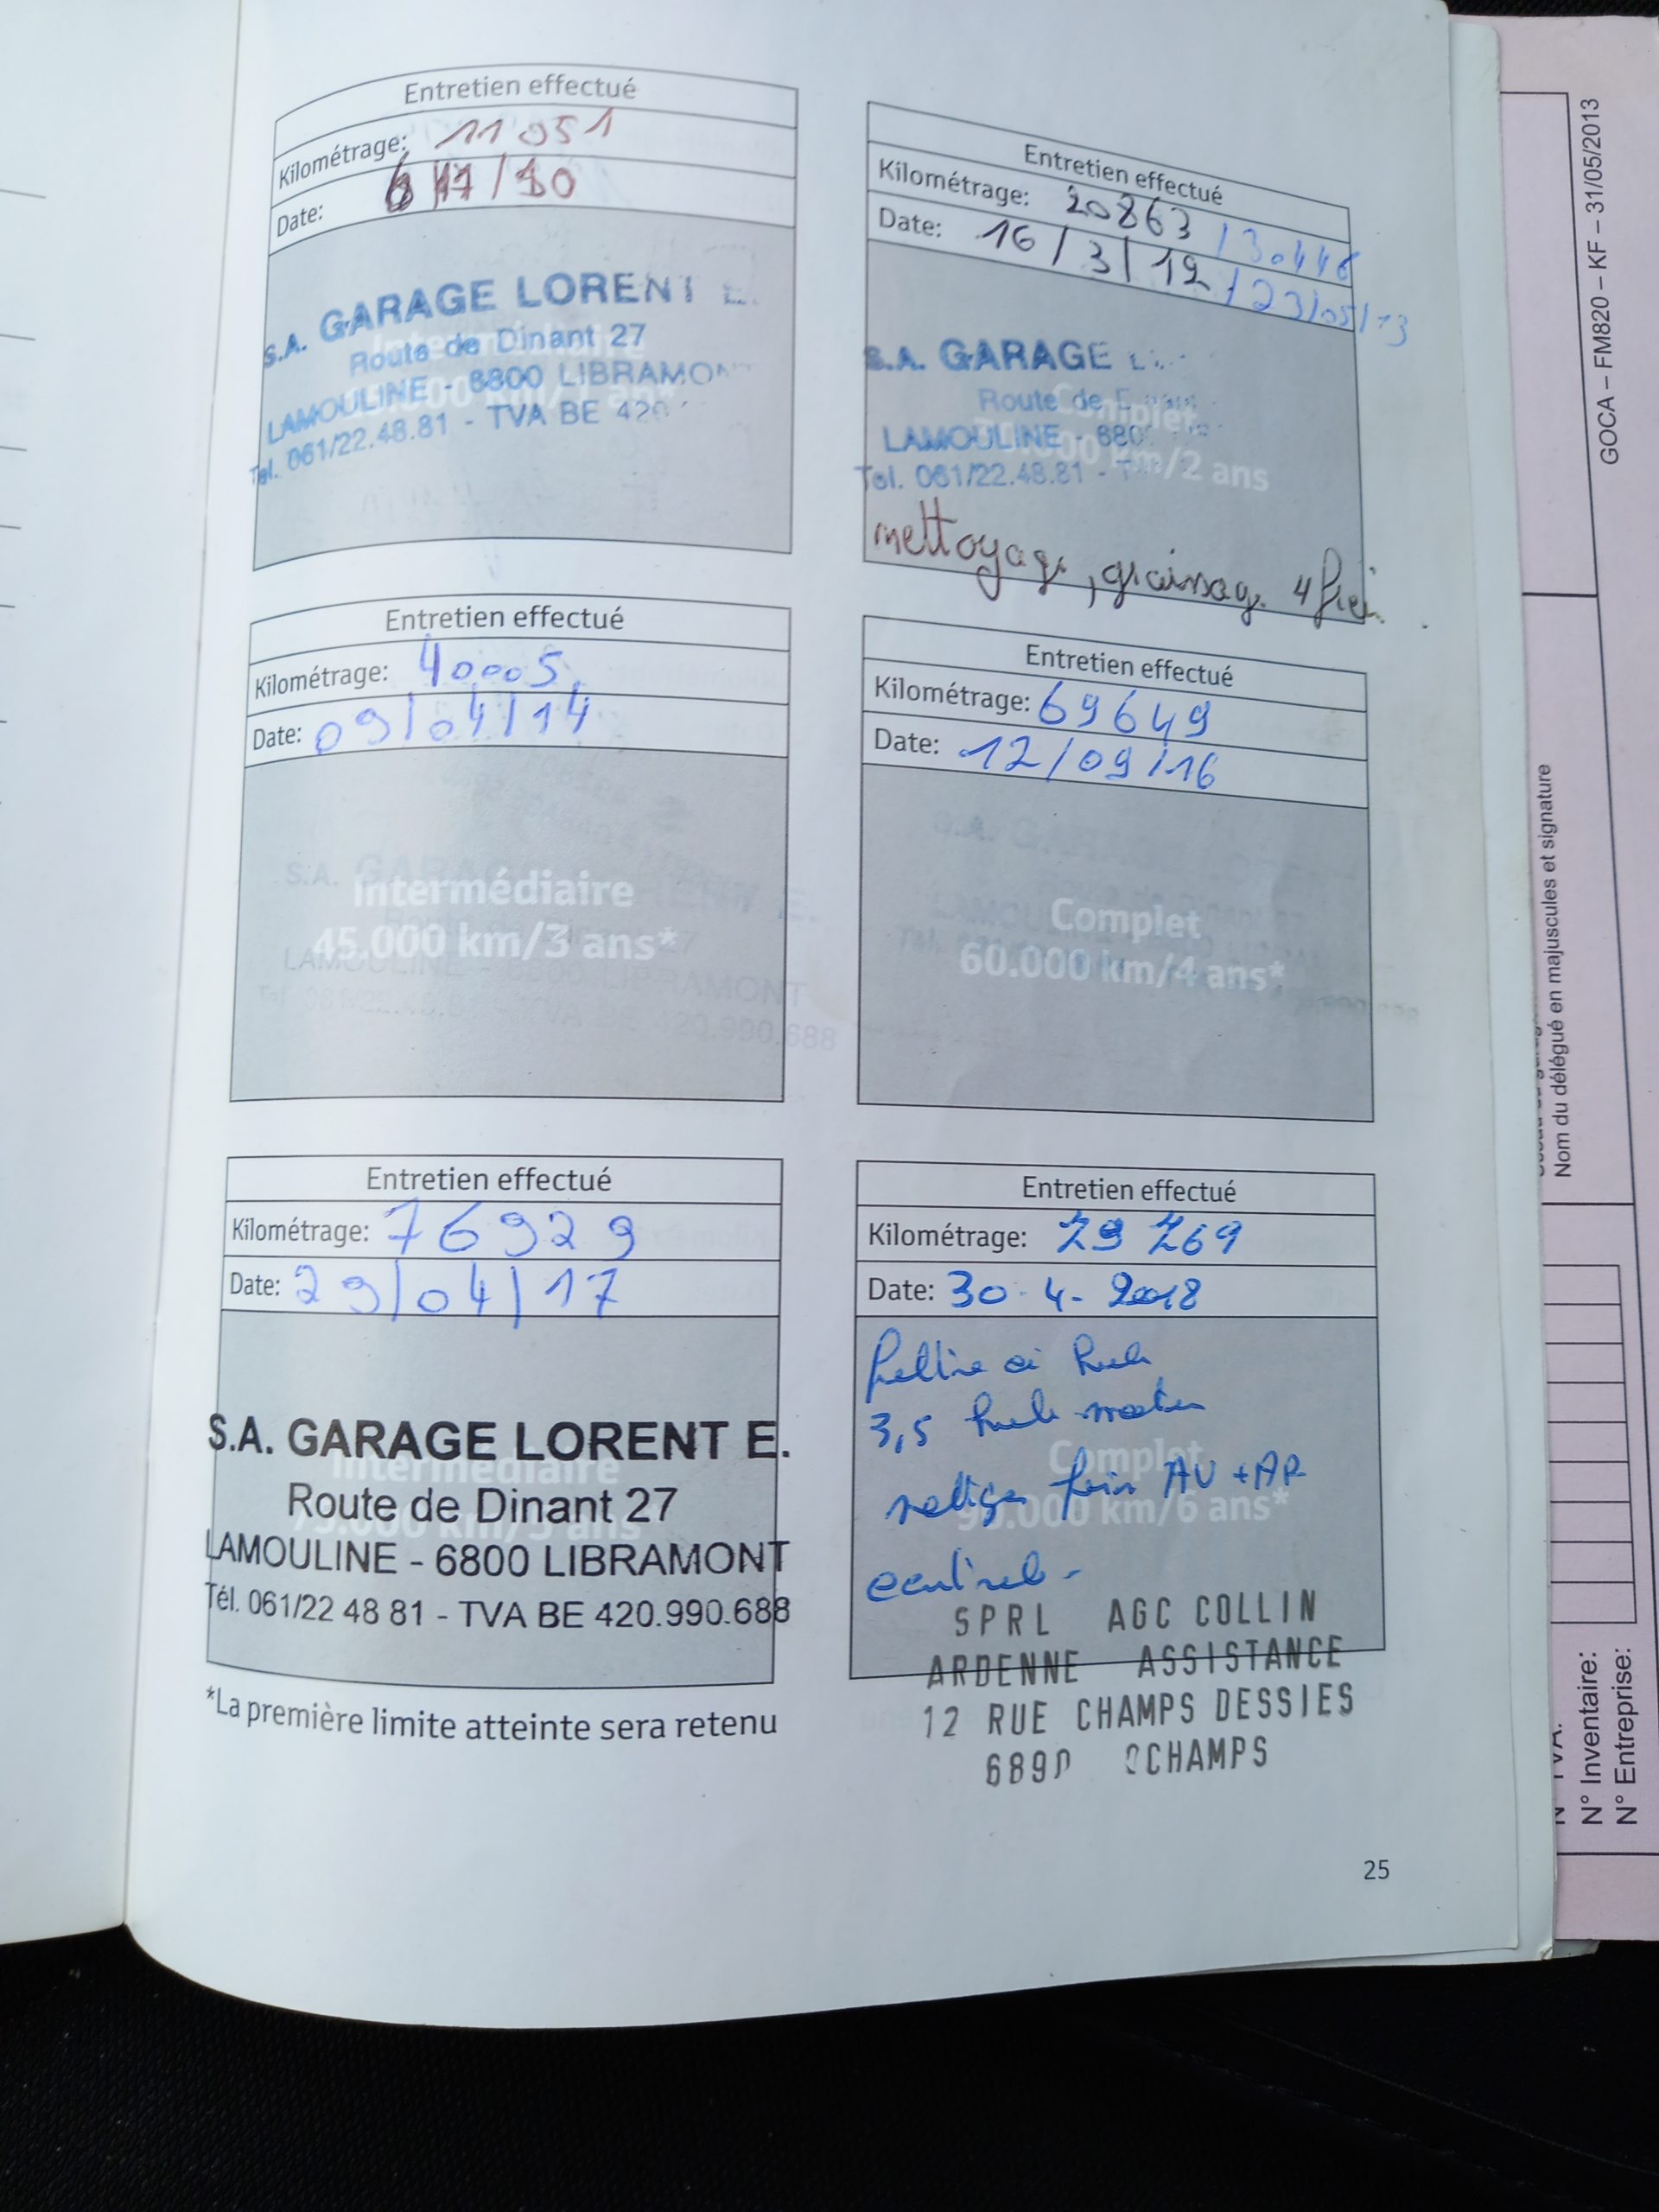 Entretien effectué
Kilométrage: 11 051
Date:
S.A. GARAGE LORENT E.
Route de Dinant 27
LAMOULINE - 6800 LIBRAMONT
Tel. 061/22.48.81 - TVA BE 420
Entretien effectué
Kilométrage: 20863 / 30446
Date: 16/3/12 / 23/05/13
S.A. GARAGE
Route de
LAMOULINE - 680
Tel. 061/22.48.81 -
Complet
km/2 ans
nettoyage, graissage 4 frein
Entretien effectué
Kilométrage: 40005
Date: 09/04/14
S.A. GARAGE LORENT E.
Intermédiaire
45.000 km/3 ans*
LAMOULINE - 6800 LIBRAMONT
Tel. 061/22.48.81 - TVA BE 420.990.688
Entretien effectué
Kilométrage: 69649
Date: 12/09/16
Complet
60.000 km/4 ans*
Entretien effectué
Kilométrage: 76929
Date: 29/04/17
S.A. GARAGE LORENT E.
Intermédiaire
Route de Dinant 27
LAMOULINE - 6800 LIBRAMONT
Tél. 061/22 48 81 - TVA BE 420.990.688
*La première limite atteinte sera retenu
Entretien effectué
Kilométrage: 79 769
Date: 30-4-2018
3,5
Complet
AV + AR
90.000 km/6 ans*
SPRL AGC COLLIN
ARDENNE ASSISTANCE
12 RUE CHAMPS DESSIES
6890 OCHAMPS
25
GOCA – FM820 – KF – 31/05/2013
Nom du délégué en majuscules et signature
N° Inventaire:
N° Entreprise: